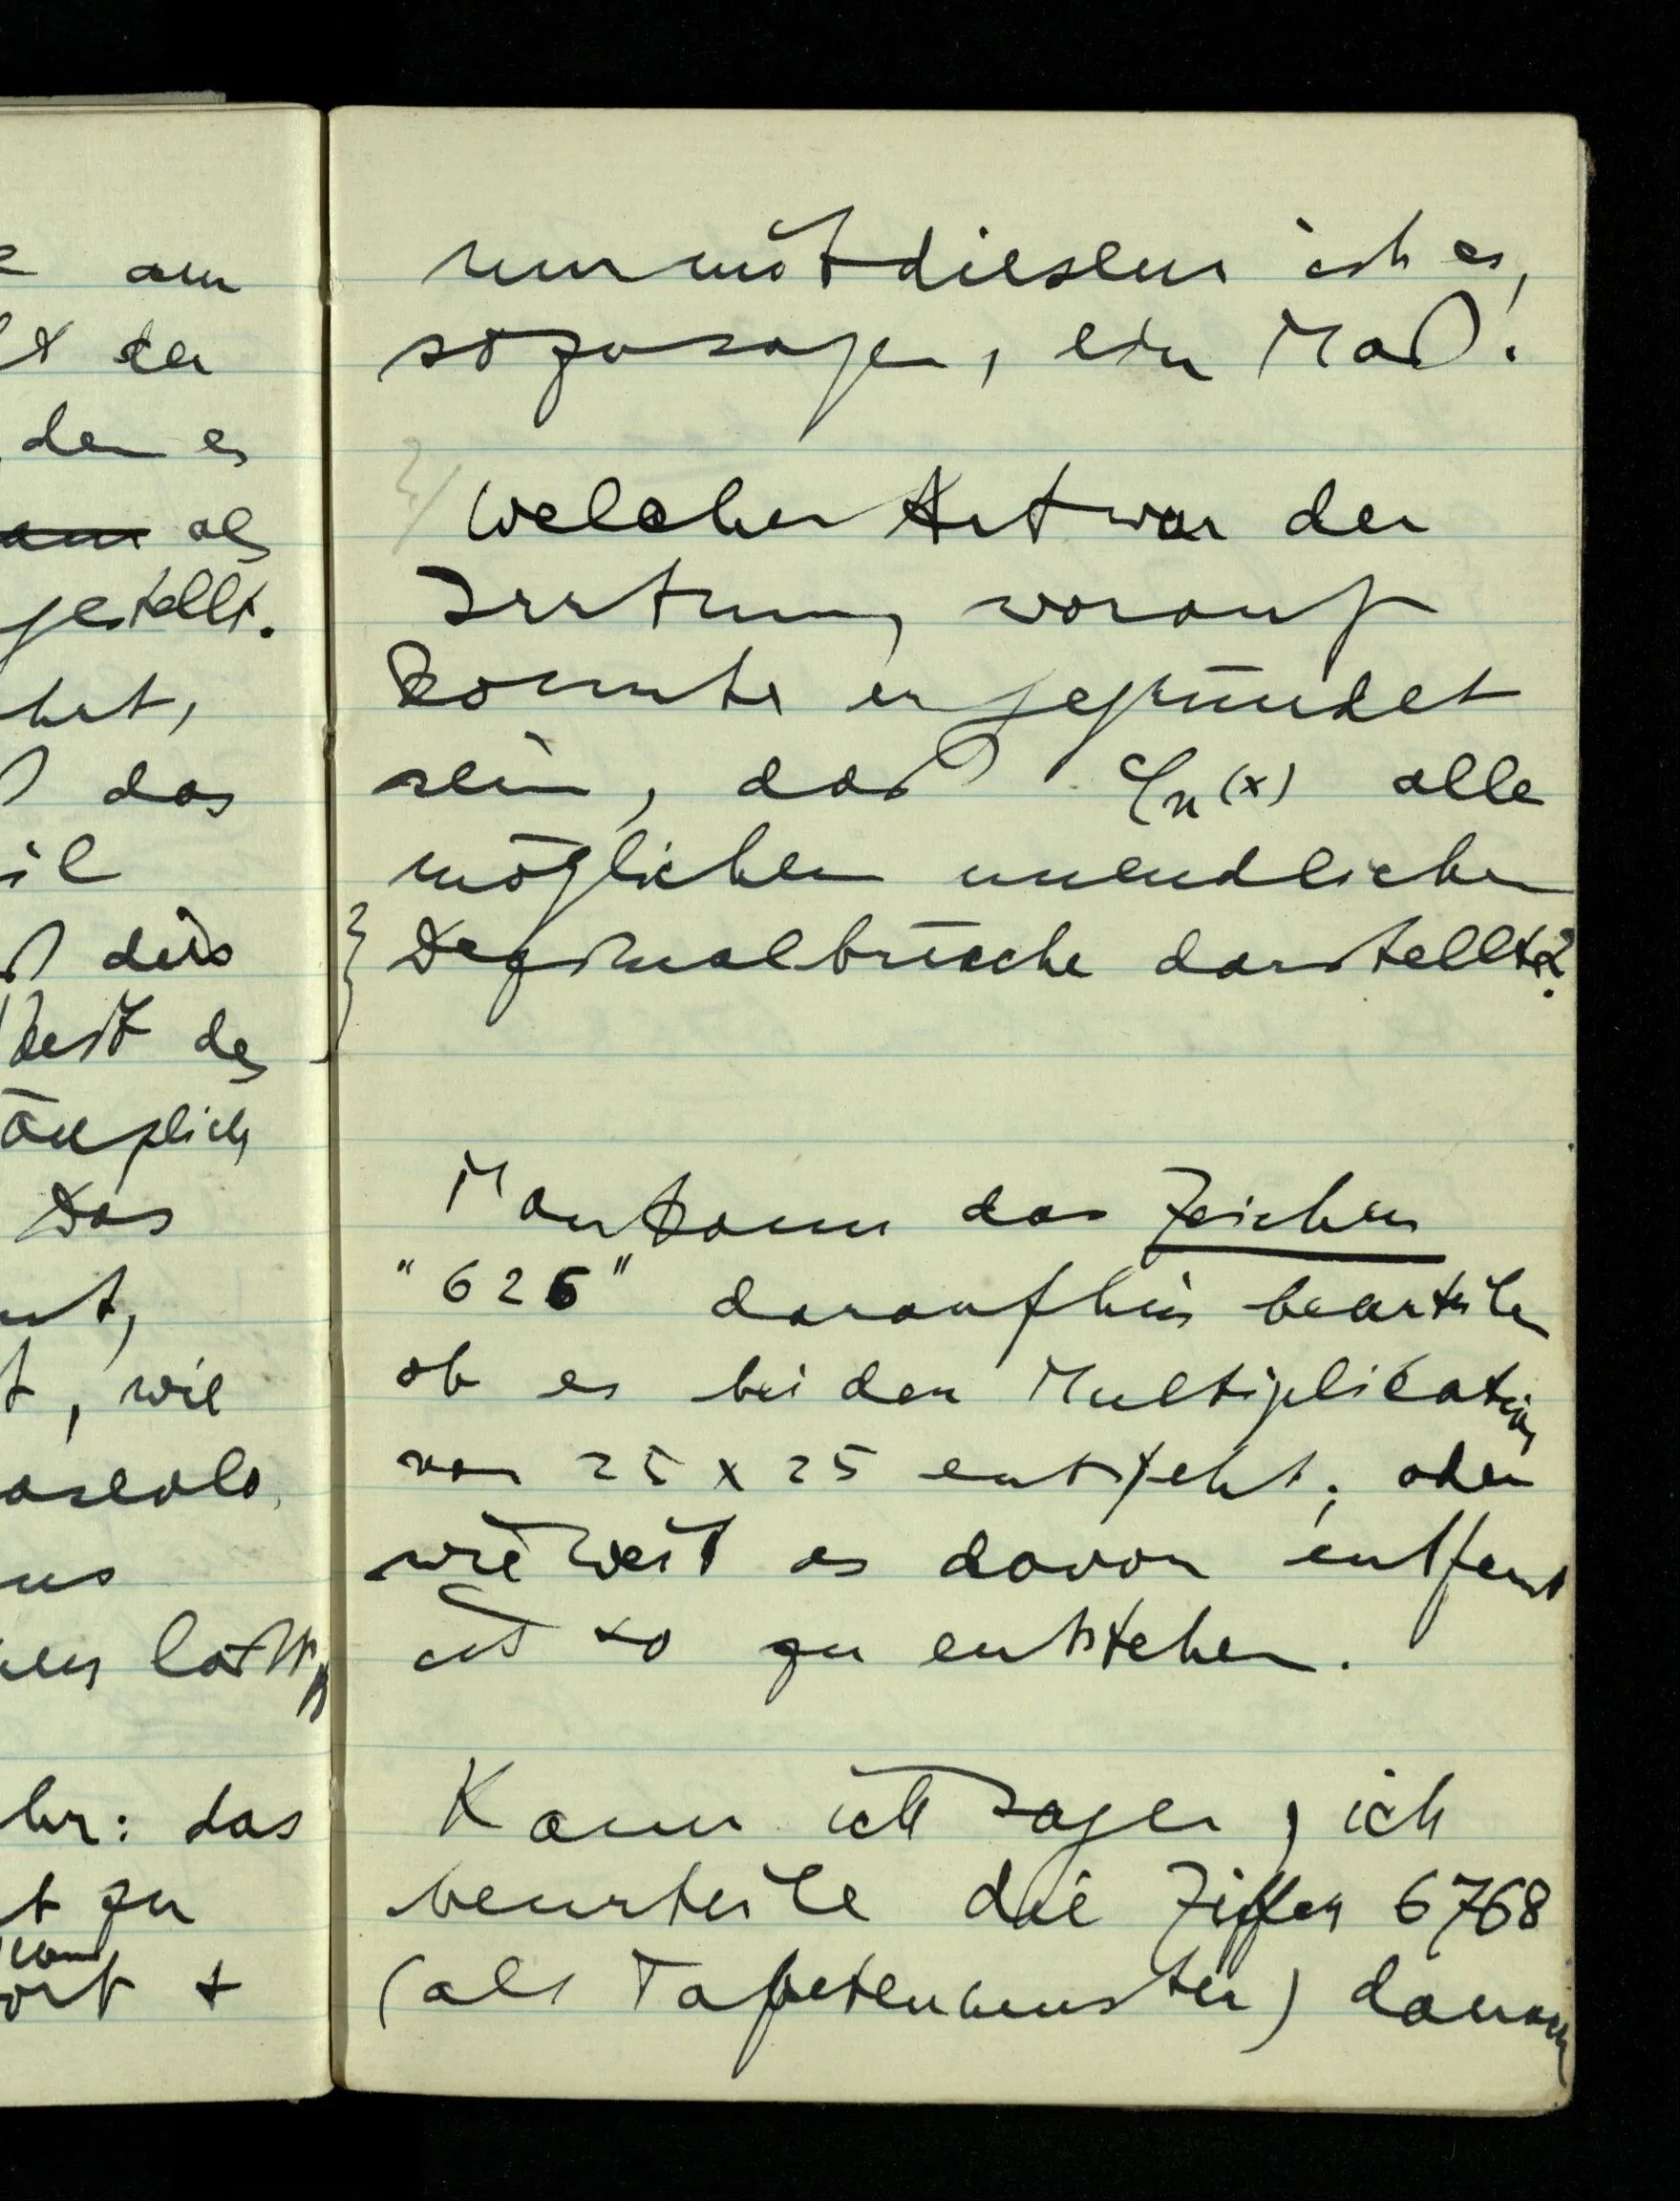 am
der
den es
am als
gestellt.
das
dies
des
Das
, wie
das
zu
nur mit diesem ist es,
sozusagen, ein Maß.
Welcher Art war der
Irrtum, worauf
konnte er gegründet
sein, daß φn(x) alle
möglichen unendlichen
Dezimalbrüche darstellt?
Man kann das Zeichen
"625" daraufhin beurteilen
ob es bei der Multiplication
von 25 x 25 entsteht; oder
wie weit es davon entfernt
ist so zu entstehen.
Kann ich sagen, ich
beurteile die Ziffer 6768
(als Tapetenmuster) danach